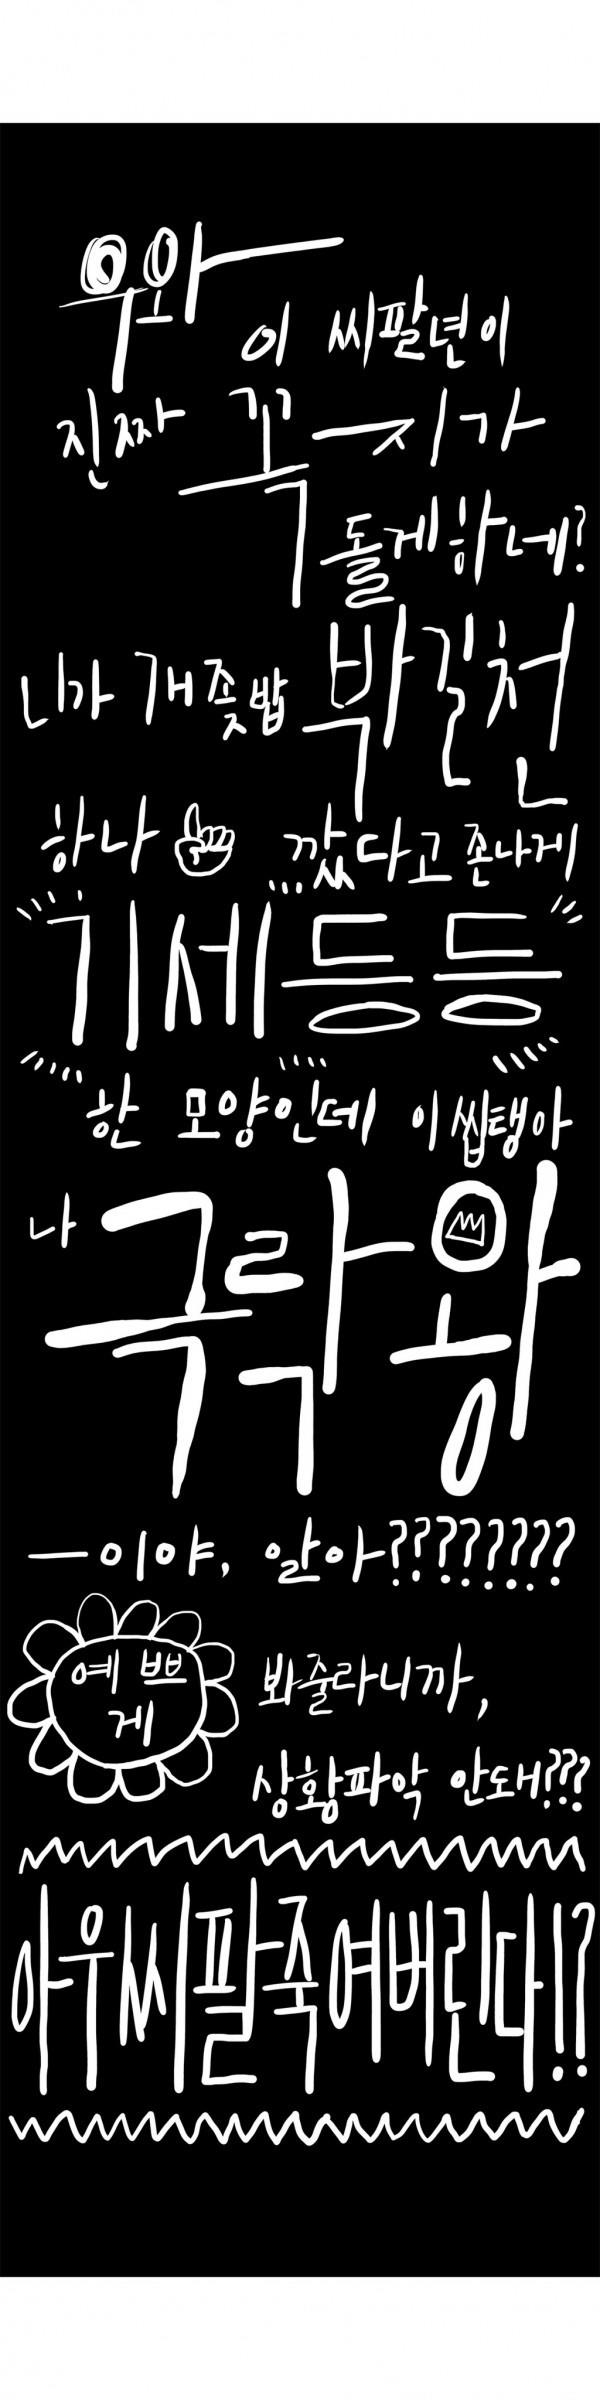 우와
이 씨팔년이
진짜 꼭지가
돌게하네?
니가 개좆밥 박길천
하나 깠다고 존나게
기세등등
한 모양인데 이 씹탱아
나 극락왕
ㅡ이야, 알아????????
예쁘
게
봐줄라니까,
상황파악 안돼???
아우씨팔죽여버린다!?